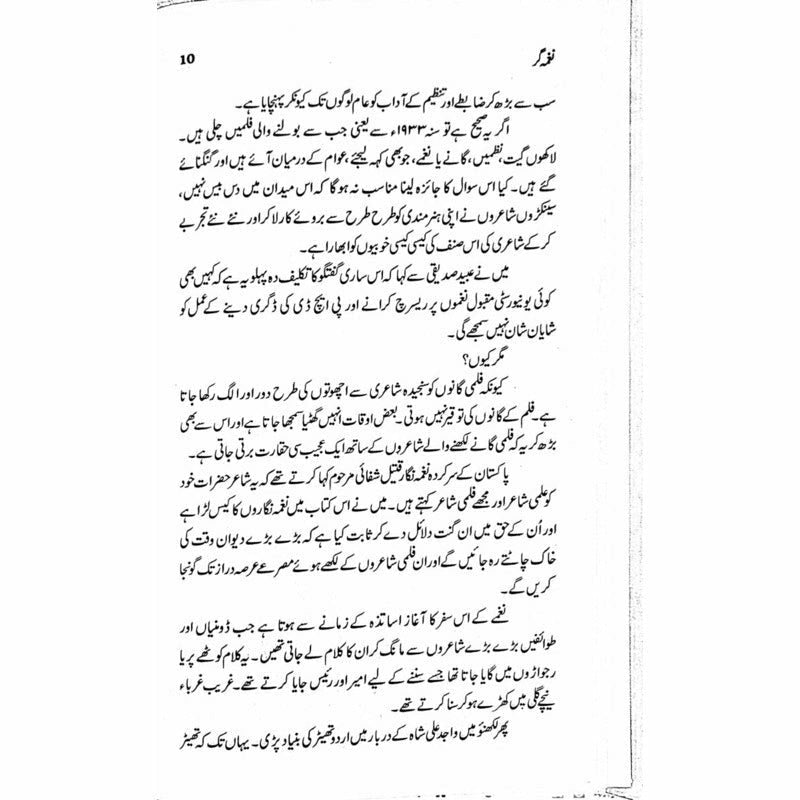 نغمہ گر 10
سب سے بڑھ کر ضابطے اور تنظیم کے آداب کو عام لوگوں تک کیونکر پہنچایا ہے۔
اگر یہ صحیح ہے تو سنہ ۱۹۳۳ء سے یعنی جب سے بولنے والی فلمیں چلی ہیں۔
لاکھوں گیت، نظمیں، گانے یا نغمے، جو بھی کہہ لیجئے، عوام کے درمیان آئے ہیں اور گنگنائے
گئے ہیں۔ کیا اس سوال کا جائزہ لینا مناسب نہ ہوگا کہ اس میدان میں دس بیس نہیں،
سینکڑوں شاعروں نے اپنی ہنرمندی کو طرح طرح سے بروئے کار لا کر اور نئے نئے تجربے
کر کے شاعری کی اس صنف کی کیسی کیسی خوبیوں کو ابھارا ہے۔
میں نے عبید صدیقی سے کہا کہ اس ساری گفتگو کا تکلیف دہ پہلو یہ ہے کہ کہیں بھی
کوئی یونیورسٹی مقبول نغموں پر ریسرچ کرانے اور پی ایچ ڈی کی ڈگری دینے کے عمل کو
شایان شان نہیں سمجھے گی۔
مگر کیوں؟
کیونکہ فلمی گانوں کو سنجیدہ شاعری سے اچھوتوں کی طرح دور اور الگ رکھا جاتا
ہے۔ فلم کے گانوں کی توقیر نہیں ہوتی۔ بعض اوقات انہیں گھٹیا سمجھا جاتا ہے اور اس سے بھی
بڑھ کر یہ کہ فلمی گانے لکھنے والے شاعروں کے ساتھ ایک عجیب سی حقارت برتی جاتی ہے۔
پاکستان کے سرکردہ نغمہ نگار قتیل شفائی مرحوم کہا کرتے تھے کہ یہ شاعر حضرات خود
کو علمی شاعر اور مجھے فلمی شاعر کہتے ہیں۔ میں نے اس کتاب میں نغمہ نگاروں کا کیس لڑا ہے
اور اُن کے حق میں ان گنت دلائل دے کر ثابت کیا ہے کہ بڑے بڑے دیوان وقت کی
خاک چانٹے رہ جائیں گے اور ان فلمی شاعروں کے لکھے ہوئے مصرعے عرصہ دراز تک گونجا
کریں گے۔
نغمے کے اس سفر کا آغاز اساتذہ کے زمانے سے ہوتا ہے جب ڈومنیاں اور
طوائفیں بڑے بڑے شاعروں سے مانگ کر ان کا کلام لے جاتی تھیں۔ یہ کلام کوٹھے پر یا
رجواڑوں میں گایا جاتا تھا جسے سننے کے لیے امیر اور رئیس جایا کرتے تھے۔ غریب غرباء
نیچے گلی میں کھڑے ہو کر سنا کرتے تھے۔
پھر لکھنؤ میں واجد علی شاہ کے دربار میں اردو تھیٹر کی بنیاد پڑی۔ یہاں تک کہ تھیٹر